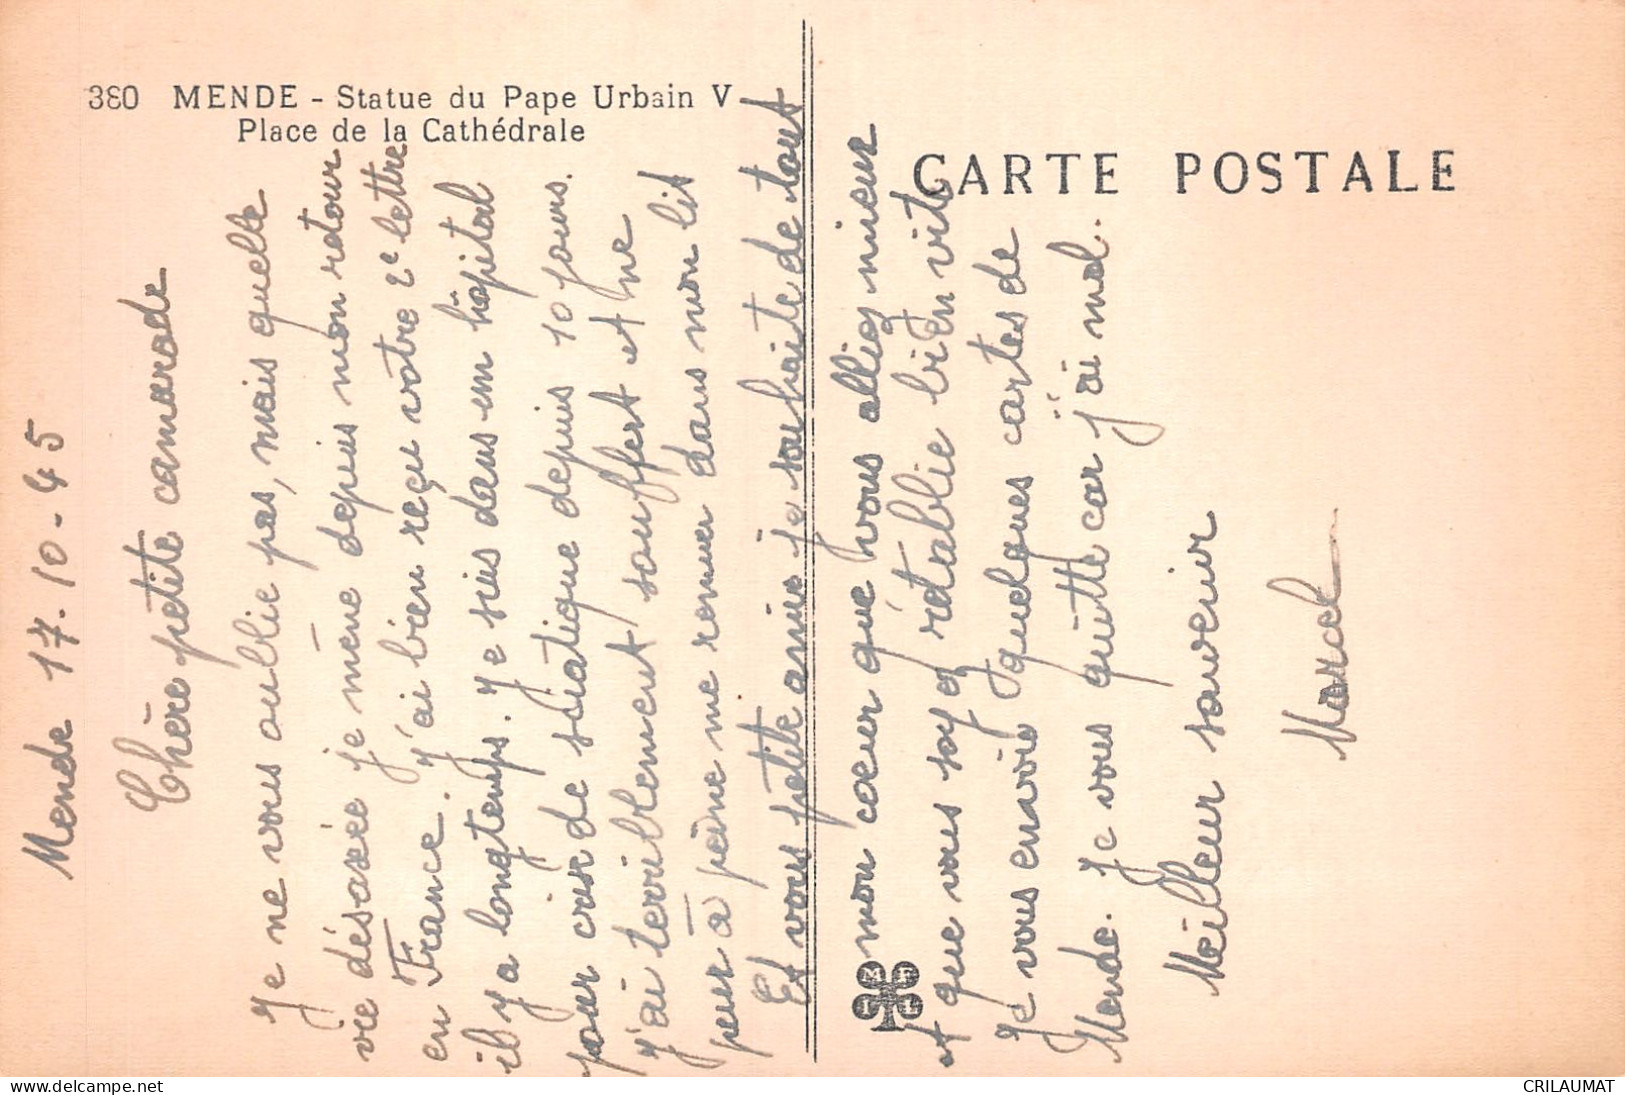 380 MENDE - Statue du Pape Urbain V
Place de la Cathédrale
CARTE POSTALE
M F
I L
Mende 17-10-45
Chère petite camarade
Je ne vous oublie pas, mais quelle
vie désaxée je mène depuis mon retour
en France. J'ai bien reçu votre 2e lettre
il y a longtemps. Je suis dans un hôpital
pour crise de sciatique depuis 10 jours.
J'ai terriblement souffert et ne
peux à peine me remuer dans mon lit
Et vous petite amie je souhaite de tout
mon coeur que vous alliez mieux
et que vous soyez rétablie bien vite
Je vous envoie quelques cartes de
Mende. Je vous quitte car j'ai mal.
Meilleur souvenir
Marcel
delcampe.net
CRILAUMAT